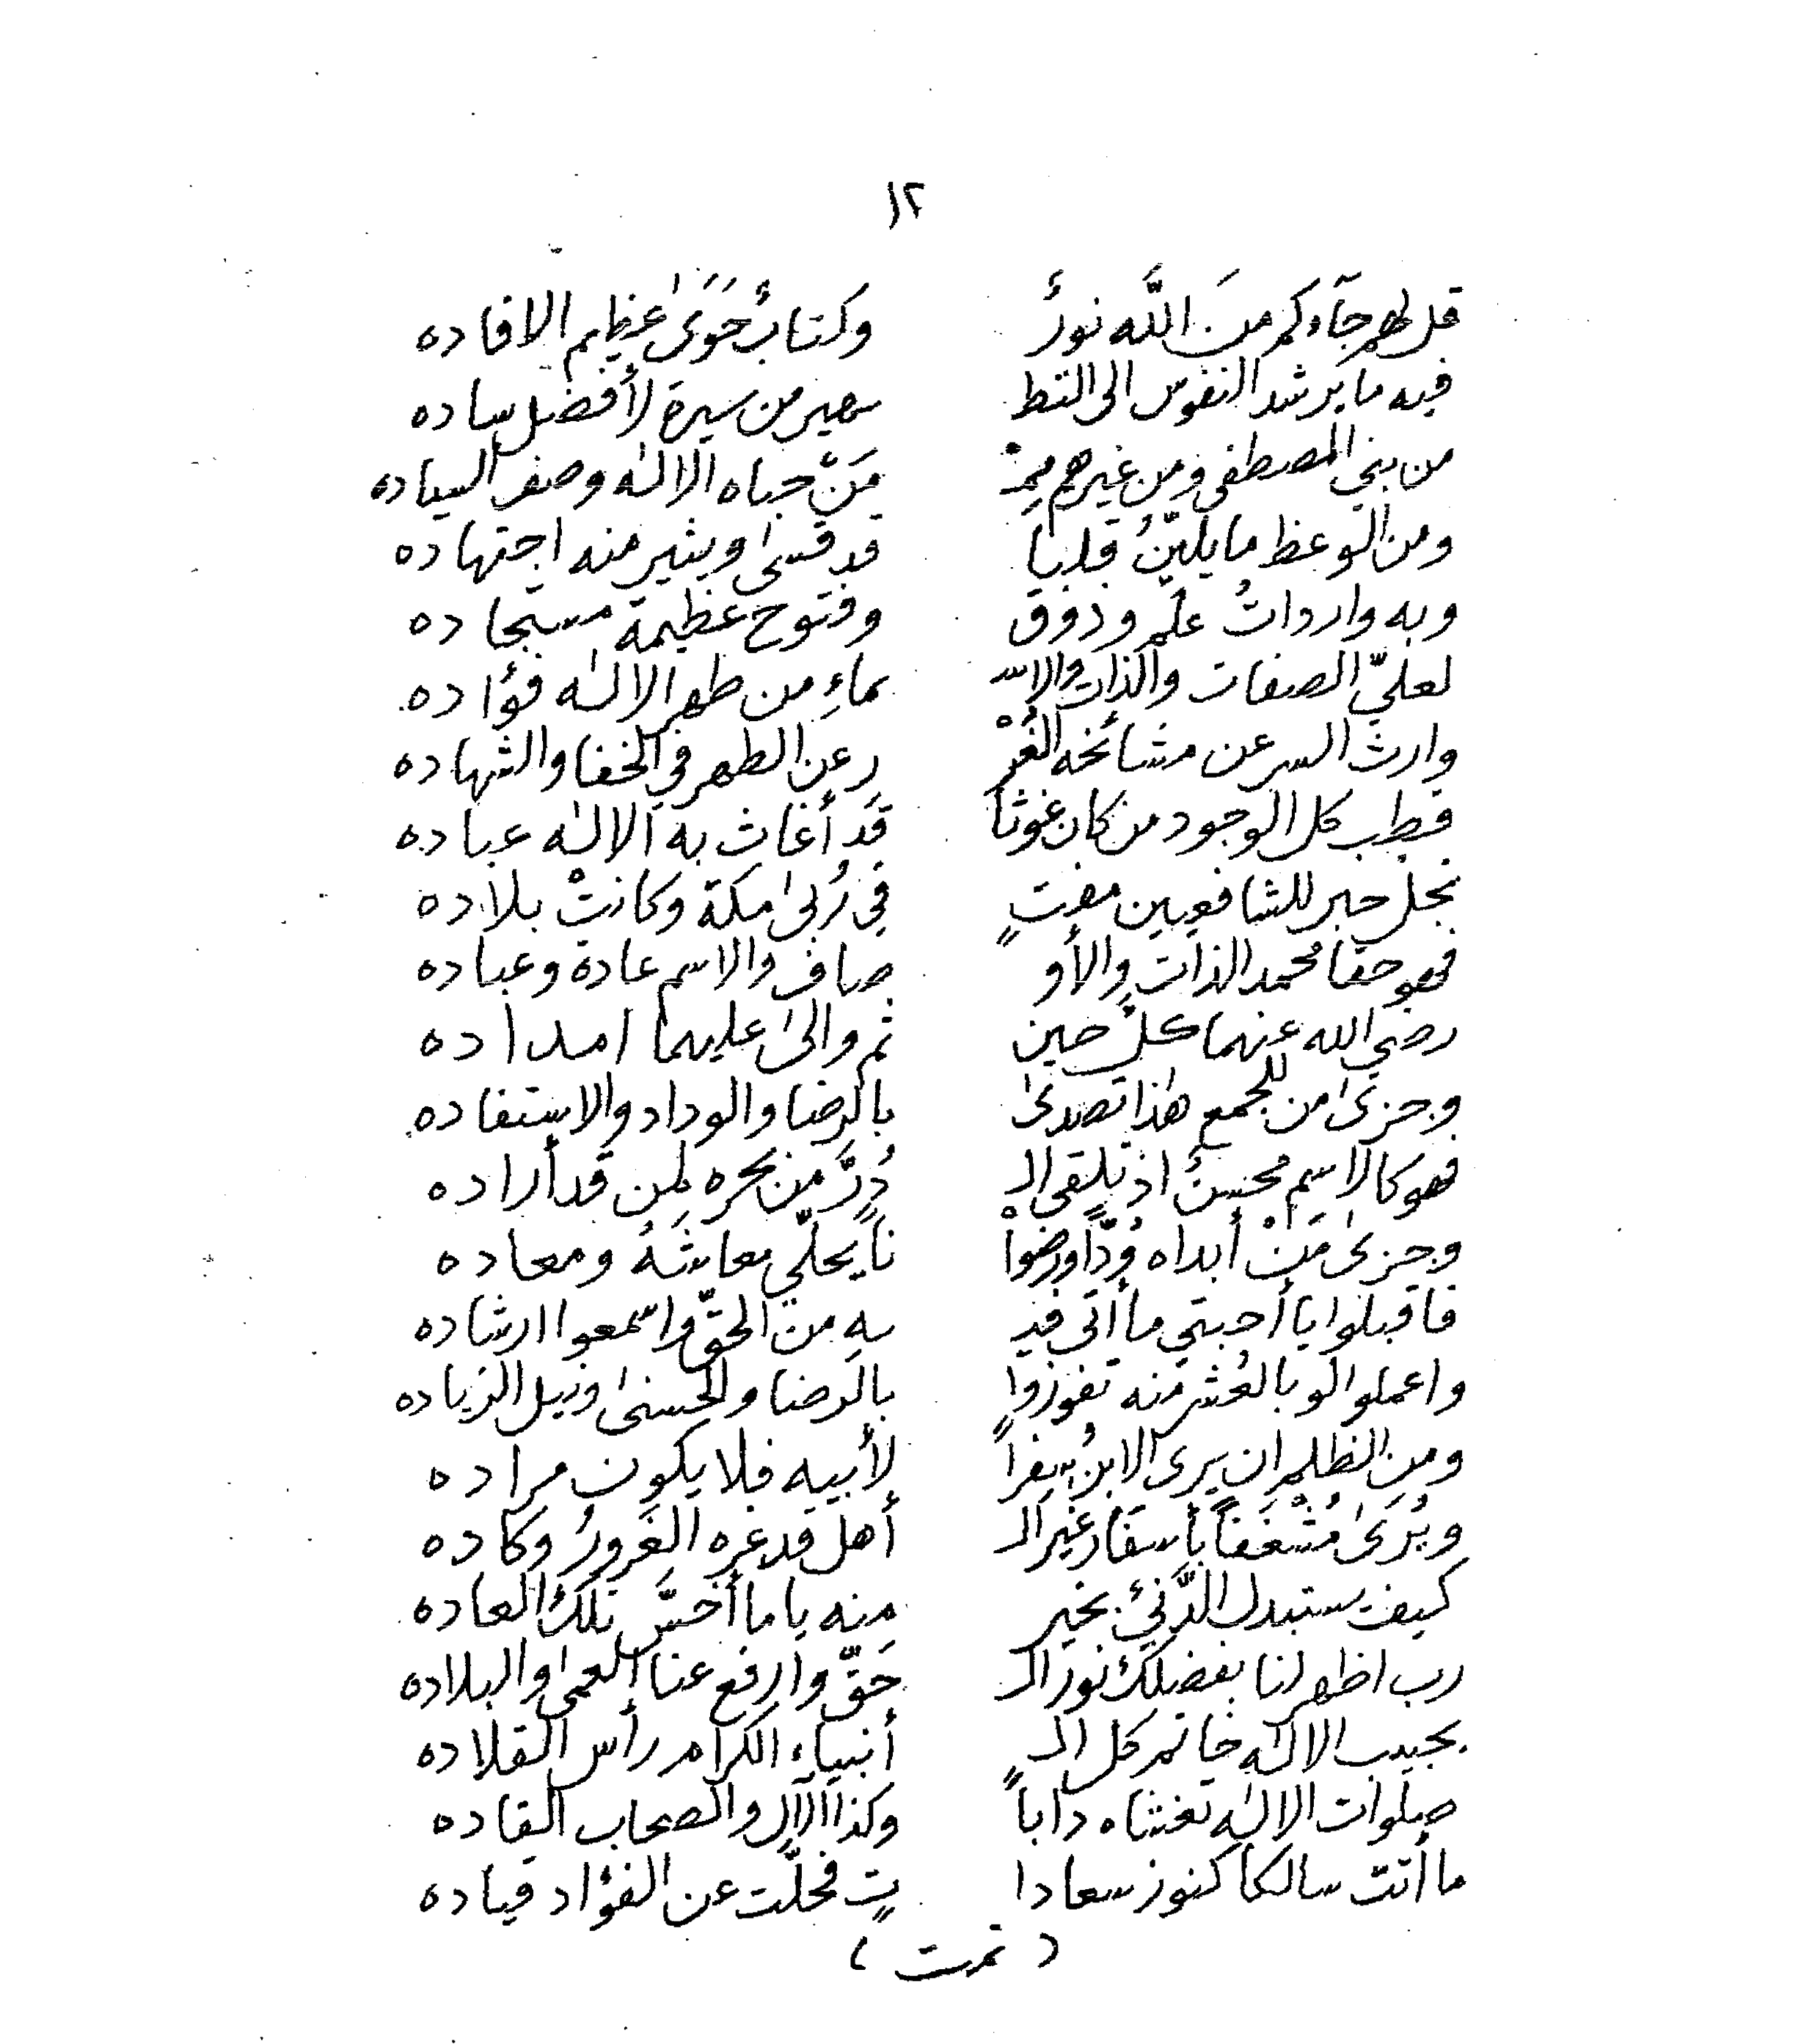 ١٢
قل لهم جآءكم منَ اللَّه نورٌ وكتابٌ حَوَىٰ عظيم الافاده
فيه ما يرشد النفوس الى التط هير من سيرة لأفضل ساده
من بني المصطفى ومن غيرهم مِمْ مَنْ حباه الالٰه وصف السياده
ومن الوعظ ما يليّنُ قلبا قد قسىٰ ويثير منه اجتهاده
وبه وارداتُ علم وذوق وفتوح عظيمة مستجاده
لعليّ الصفات والذات والاسـ ماءِ من طهر الالٰه فؤاده
وارث السر عن مشائخه الغُرْ رِ عن الطهر في الخفا والشهاده
قطب كل الوجود من كان غوثاً قد أغاث به الالٰه عباده
نجل حبر للشافعيين مفتٍ في رُبىٰ مكة وكانتْ بلاده
فهو حقا محمد الذات والأو صاف والاسم عادة وعباده
رضي الله عنهما كل حين ثم والىٰ عليهما امداده
وجزىٰ من للجمع هٰذا تصدىٰ بالرضا والوداد والاستفاده
فهو كالاسم محسنٌ اذ تلقى الـ دُرَّ من بحره لمن قد أراده
وجزىٰ مَنْ أبداه وُدّاً ورضوا ناً يحلّي معاشَهُ ومعاده
فاقبلوا يا أحبتي ما أتى فيـ ـه من الحقّ واسمعوا ارشاده
واعملوا لو بالعُشر منه تفوزوا بالرضا والحسنىٰ ونيل الزياده
ومن الظلم ان يرى الابنُ سِفراً لأبيه فلا يكون مراده
ويُرَىٰ مُشْغَفاً بأسفار غير الـ أهل قد غره الغَرورُ وكاده
كيف يستبدل الدَّنيُّ بخير منه يا ما أخسَّ تلك العاده
رب اظهر لنا بفضلك نور الـ حَقّ وارفع عنا العمىٰ والبلاده
بحبيب الالٰه خاتم كل الـ أنبياء الكرام رأس القلاده
صلوات الالٰه تغشاه داباً وكذا الآل والصحاب القاده
ما أتت سالكا كنوز سعادا تٍ فحلّت عن الفؤاد قياده
( تمت )